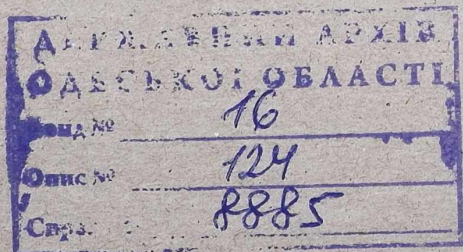 ДЕРЖАВНИЙ АРХІВ
ОДЕСЬКОЇ ОБЛАСТІ
Фонд № 16
Опис № 124
Спр. 8885